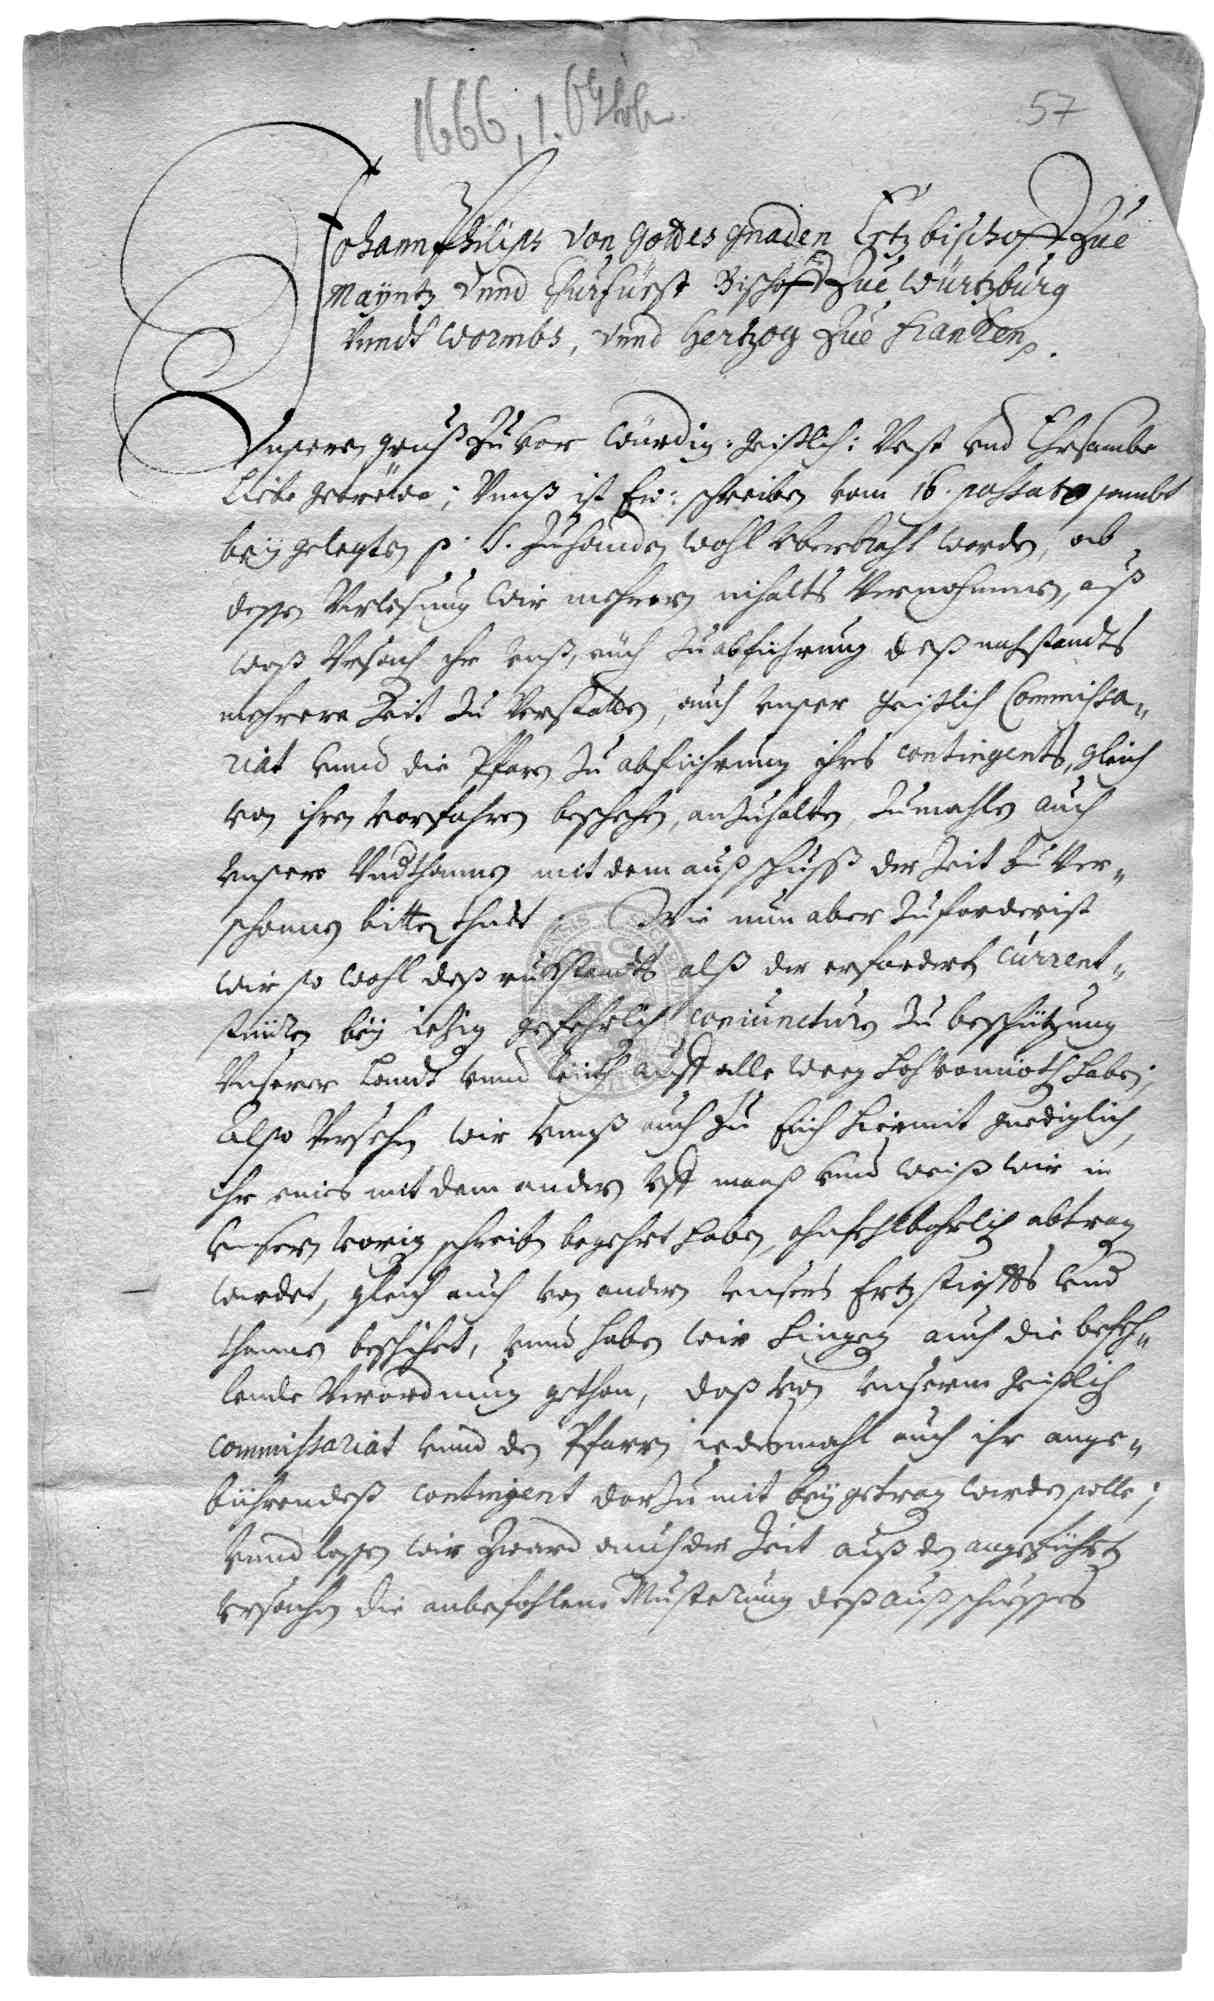 1666, 1. Octob.
57
Johann Philips von Gottes gnaden Ertzbischoff Zue
Mayntz vnnd Churfürst Bischoff Zue Würtzburg
vnndt Wormbs, vnnd Hertzog Zue Francken p.
Vnsern gruß Zuvor Würdig: Geistlich: Vest vnd Ehrsambe
Liebe getrewe; Vnnß ist Ew: schreiben vom 16. passato sambt
beÿgelegten p. S. Zuhanden wohl vberbracht worden, ab
deßen Verlesung Wir mehrern inhalts Vernohmmen, auß
waß Vrsach ihr vnß, auch Zu abführung deß nachstandts
mehrere Zeit Zu Verstatten, auch vnser Geistlich Commissa-
riat vnnd die Pfarrn Zu abführung ihres contingents, gleich
von ihren vorfahren beschehen, anzuhalten, Zumahlen auch
vnsere Vndthanen mit dem außschuß der Zeit Zu Ver-
schonen bitten thuet. Wie nun aber Zuforderist
wir so wohl deß ruckstandts alß der erforderten Current-
steüren beÿ ietzig gefehrlich coniuncturen Zu beschützung
Vnserer Landt vnnd Leüth auff alle weeg hochvonnöth haben;
Also Versehen wir vnnß auch Zu Euch hiermit gnediglich,
ihr eines mit dem andern vff maaß vnnd weiß wir in
vnserm vorig schreiben begehrt haben, ohnfehlbahrlich abtragen
werdet, gleich auch von andern vnsers Ertzstiffts vnd
thanen beschihet, vnnd haben wir hingegen auch die befeh-
lende Verordnung gethan, daß von vnserm Geistlich
Commissariat vnnd den Pfarrn iedesmahl auch ihr ange-
bührendeß contingent darzu mit beÿgetragen werden solle;
Vnnd lassen wir Zward auch der Zeit auß den angeführten
vrsachen die anbefohlene Musterung deß außschusses